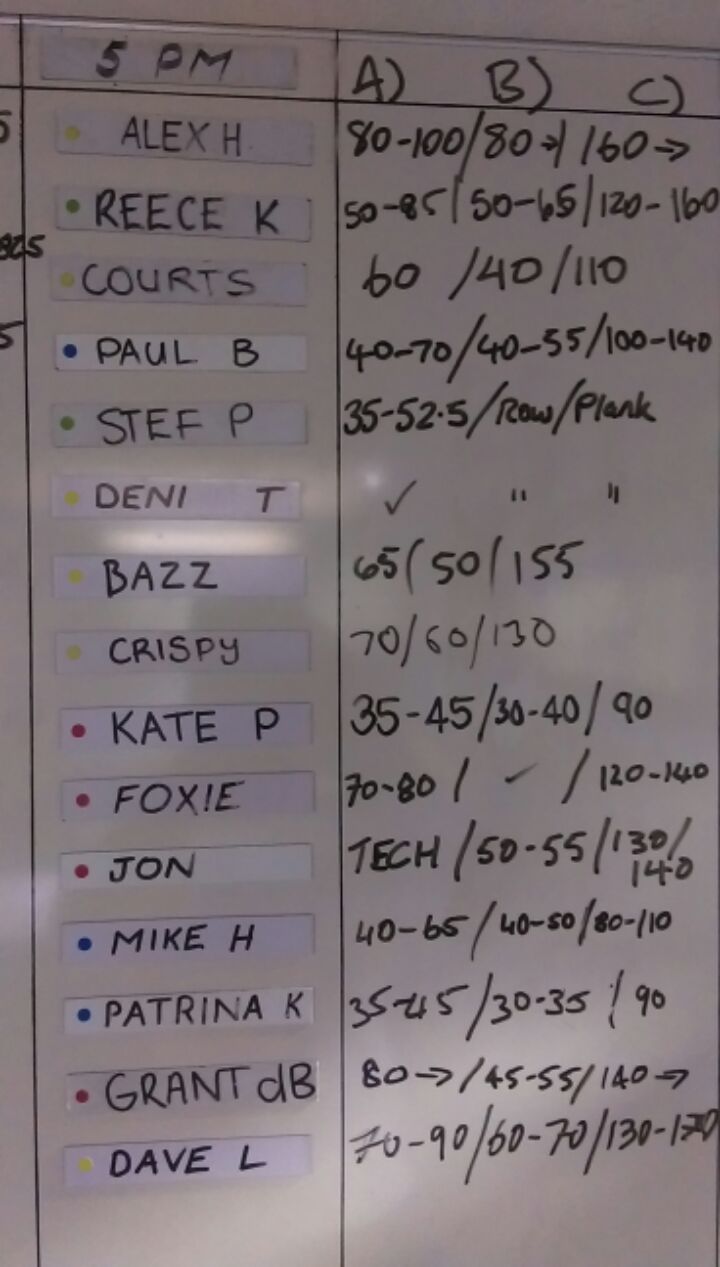 5 PM A) B) C)
ALEX H 80-100/80→/160→
REECE K 50-85/50-65/120-160
COURTS 60/40/110
PAUL B 40-70/40-55/100-140
STEF P 35-52.5/Row/Plank
DENI T ✓ " "
BAZZ 65/50/155
CRISPY 70/60/130
KATE P 35-45/30-40/90
FOXIE 70-80/✓/120-140
JON TECH/50-55/130/
140
MIKE H 40-65/40-50/80-110
PATRINA K 35-45/30-35/90
GRANT dB 80→/45-55/140→
DAVE L 70-90/60-70/130-170